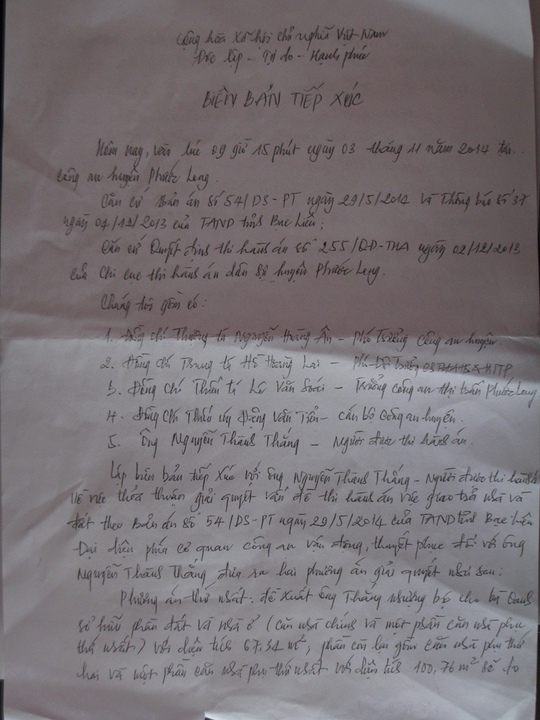 Cộng hòa xã hội chủ nghĩa Việt Nam
Độc lập - Tự do - Hạnh phúc
BIÊN BẢN TIẾP XÚC
Hôm nay, vào lúc 09 giờ 15 phút ngày 03 tháng 11 năm 2014 tại
công an huyện Phước Long.
Căn cứ bản án số 54/DS-PT ngày 29/5/2012 và thông báo số 37
ngày 04/12/2013 của TAND tỉnh Bạc Liêu;
Căn cứ Quyết định thi hành án số 255/QĐ-THA ngày 02/12/2013
của Chi cục thi hành án dân sự huyện Phước Long.
Chúng tôi gồm có:
1. Đồng chí Thượng tá Nguyễn Hoàng Ân - Phó Trưởng công an huyện
2. Đồng chí Trung tá Hồ Hoàng Lai - Phó Đội Trưởng
3. Đồng chí Thiếu tá Lê Văn - Trưởng công an thị trấn Phước Long
4. Đồng chí Thiếu úy Đặng Văn Tiến - cán bộ công an huyện.
5. Ông Nguyễn Thành Thắng - Người được thi hành án.
Lập biên bản tiếp xúc với ông Nguyễn Thành Thắng - Người được thi hành án
về việc thỏa thuận giải quyết vấn đề thi hành án việc giao trả nhà và
đất theo bản án số 54/DS-PT ngày 29/5/2014 của TAND tỉnh Bạc Liêu
Đại diện phía cơ quan công an vận động, thuyết phục đối với ông
Nguyễn Thành Thắng đưa ra hai phương án giải quyết như sau:
Phương án thứ nhất: đề xuất ông Thắng nhượng bộ cho bà Oanh
sở hữu phần đất và nhà ở (căn nhà chính và một phần căn nhà phụ
thứ nhất) với diện tích 67,34 m², phần còn lại gồm căn nhà phụ thứ
hai và một phần căn nhà phụ thứ nhất với diện tích 100,76 m² sẽ do